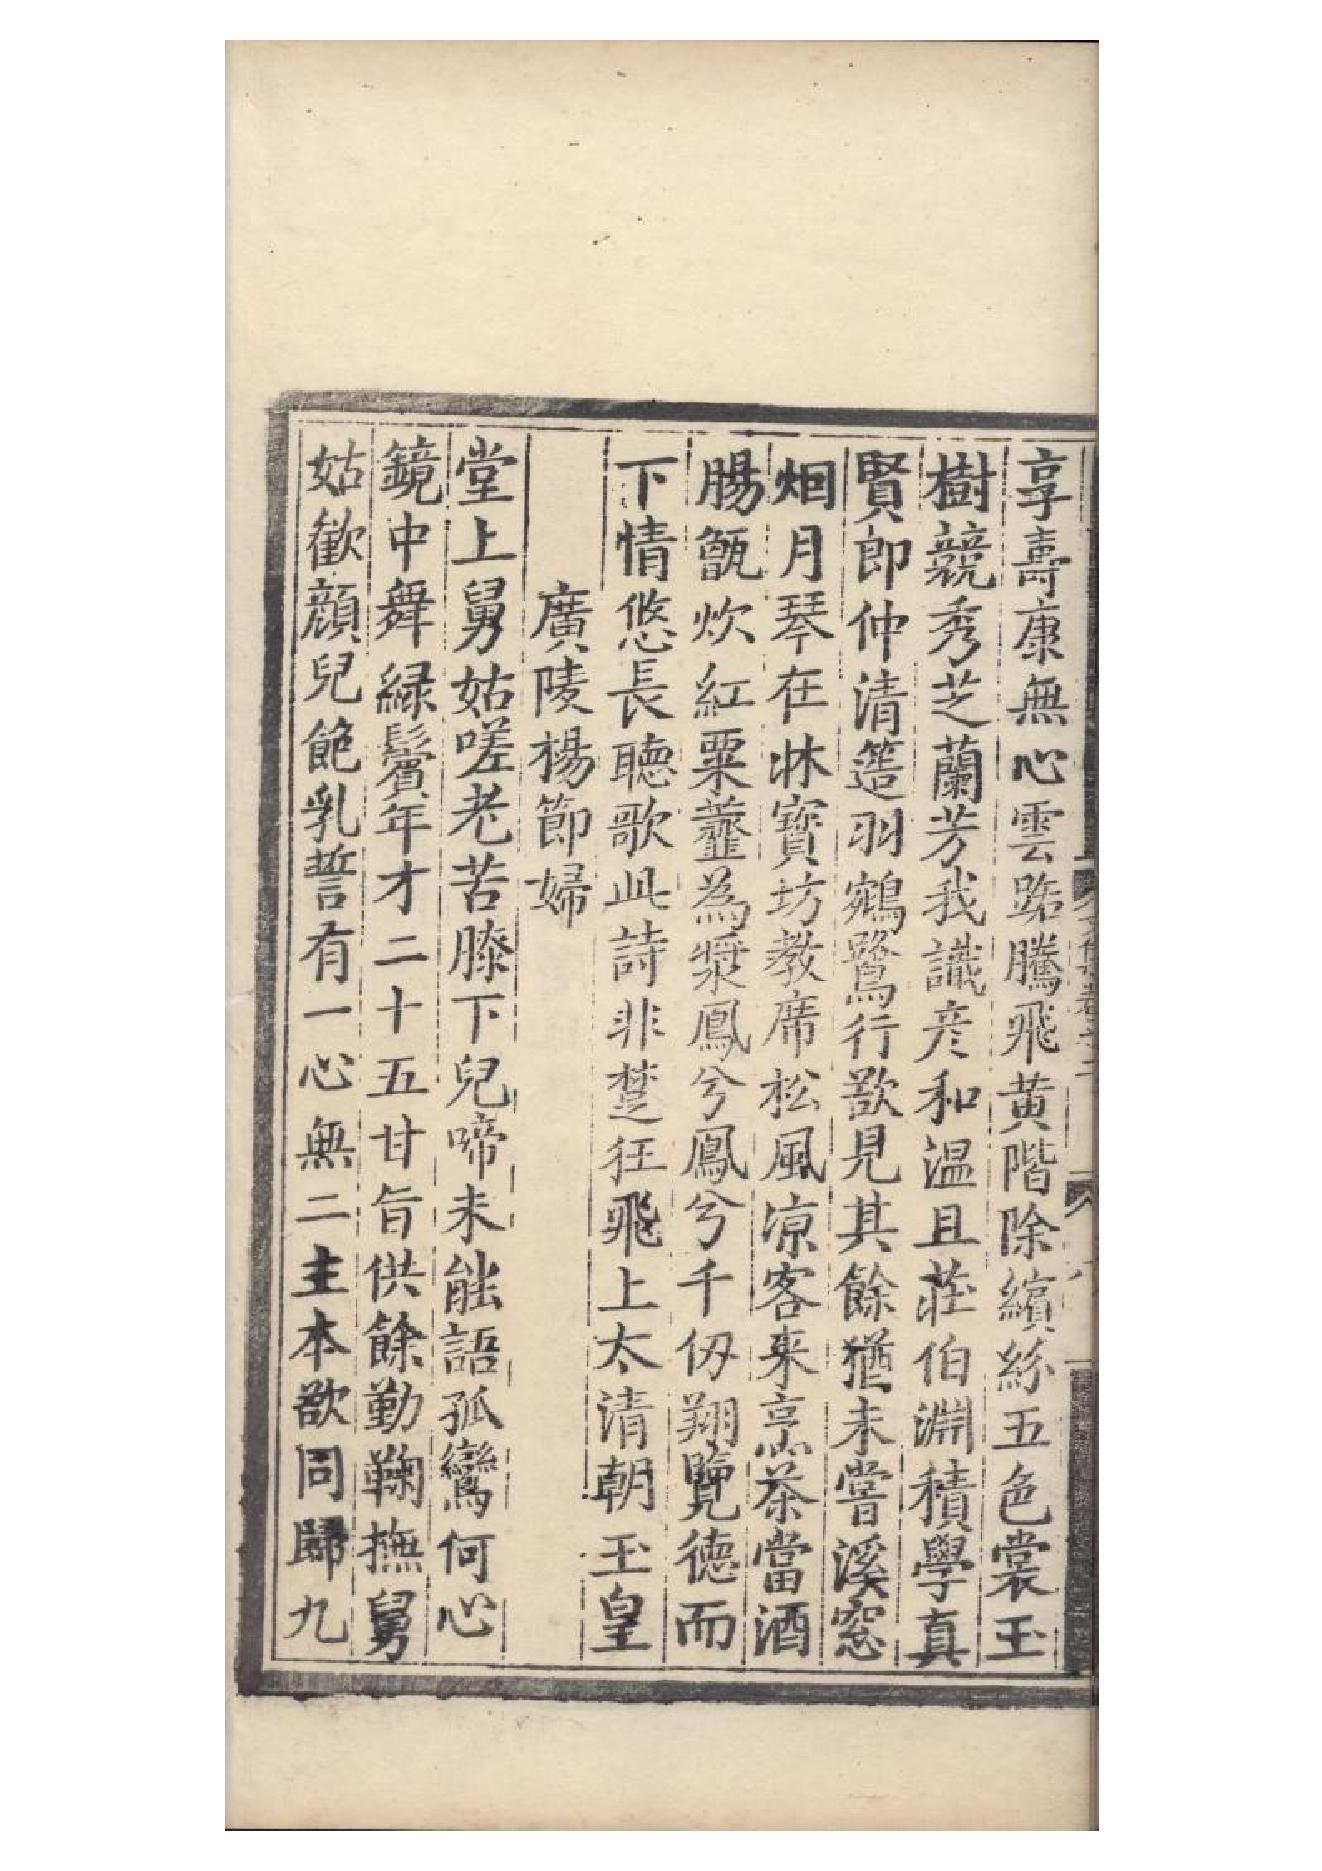 享壽康無心雲路騰飛黄階除繽紛五色裳玉
樹競秀芝蘭芳我識彦和温且莊伯淵積學真
賢郎仲清簉羽鵷鷺行歆見其餘猶未嘗溪窓
烟月琴在牀寳坊教席松風凉客来烹茶當酒
腸甑炊紅粟虀為漿鳳兮鳳兮千仭翔覽德而
下情悠長聴歌此詩非楚狂飛上太清朝玉皇
廣陵楊節婦
堂上舅姑嗟老苦膝下兒啼未能語孤鸞何心
鏡中舞緑鬢年才二十五甘旨供餘勤鞠撫舅
姑歡顔兒飽乳誓有一心無二主本欲同歸九